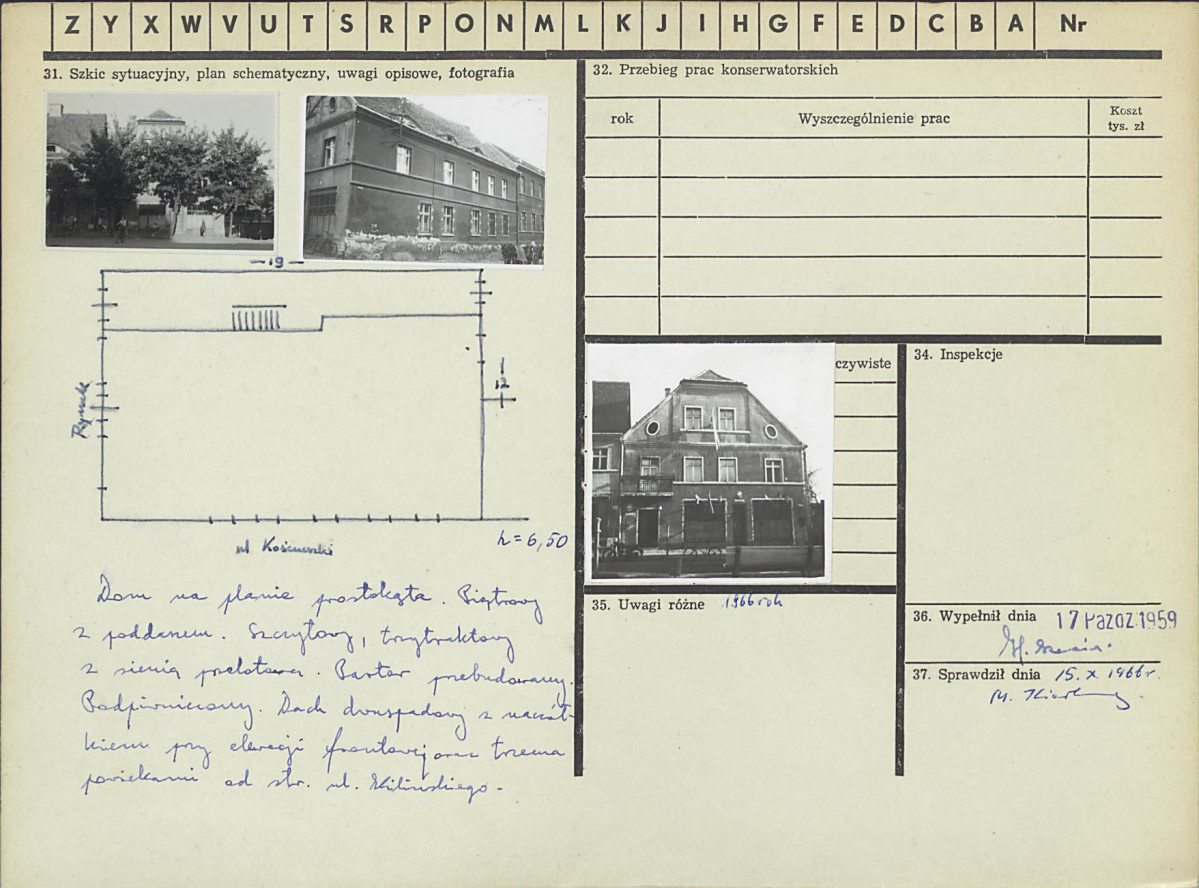 Z Y X W V U T S R P O N M L K J I H G F E D C B A Nr
31. Szkic sytuacyjny, plan schematyczny, uwagi opisowe, fotografia
19
12
Rynek
ul.
h = 6,50
Dom na planie prostokąta. Piętrowy
z poddaszem. Szczytowy, trzytraktowy
z sienią przelotową. Parter przebudowany.
Podpiwniczony. Dach dwuspadowy z naczół-
kiem przy elewacji frontowej oraz trzema
powiekami od str. ul. Kilińskiego.
32. Przebieg prac konserwatorskich
rok
Wyszczególnienie prac
Koszt
tys. zł
czywiste
34. Inspekcje
35. Uwagi różne 1966 rok
36. Wypełnił dnia 17 PAZDZ. 1959
37. Sprawdził dnia 15. X 1966 r.